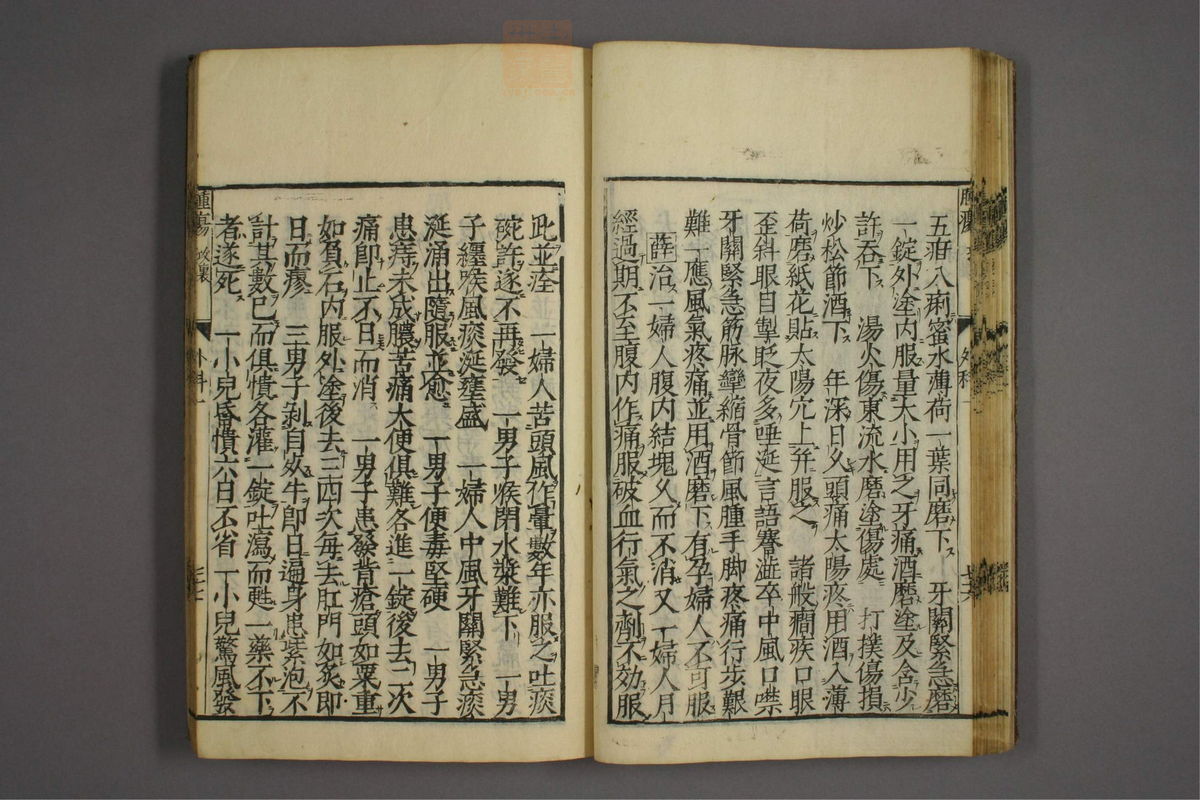 五疳八痢蜜水薄荷一葉同磨下 牙關緊急磨
一錠外塗内服量大小用之牙痛酒磨塗及含少
許吞下 湯火傷東流水磨塗傷處 打撲傷損
炒松節酒下 年深日久頭痛太陽疼用酒入薄
荷磨紙花貼太陽穴上并服之 諸般癎疾口眼
歪斜眼目掣眨夜多唾涎言語蹇澁卒中風口噤
牙關緊急筋脉攣縮骨節風腫手脚疼痛行步艱
難一應風氣疼痛並用酒磨下有孕婦人不可服
薛治一婦人腹内結塊久而不消又一婦人月
經過期不至腹内作痛服破血行氣之劑不効服
此並痊 一婦人苦頭風作暈數年亦服之吐痰
碗許遂不再發 一男子喉閉水漿難下 一男
子纏喉風痰涎壅盛 一婦人中風牙關緊急痰
涎涌出隨服並愈 一男子便毒堅硬 一男子
患痔未成膿苦痛大便俱難各進一錠後去二次
痛即止不日而消 一男子患發背瘡頭如粟重
如負石内服外塗後去三四次每去肛門如炙即
日而瘳 三男子剥自死牛即日遍身患紫泡不
計其數已而俱憒各灌一錠吐瀉而甦一藥不下
者遂死 一小兒昏憒六日不省 一小兒驚風發
外科一